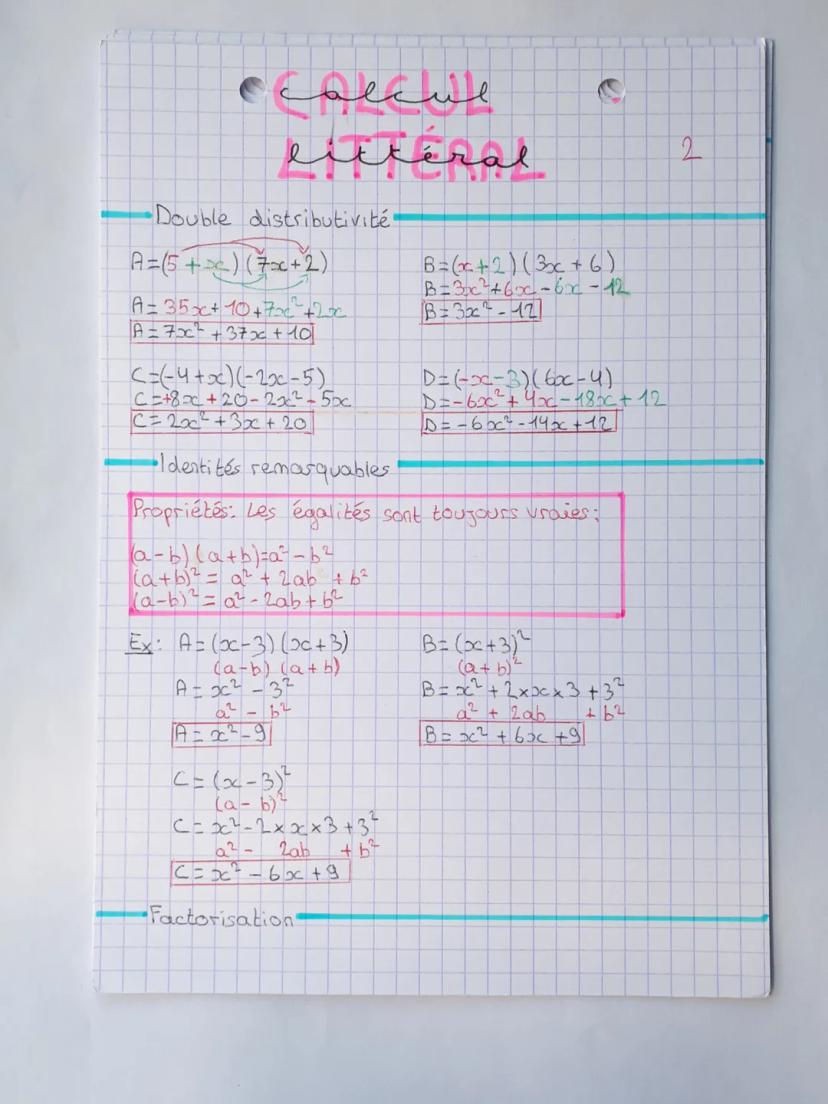 CALCUL
calcul
LITTÉRAL
littéral
2
Double distributivité
A=(5+x)(7x+2)
A=35x+10+7x²+2x
A=7x²+37x+10
B=(x+2)(3x+6)
B=3x²+6x-6x-12
B=3x²-12
C=(-4+x)(-2x-5)
C=+8x+20-2x²-5x
C=2x²+3x+20
D=(-x-3)(6x-4)
D=-6x²+4x-18x+12
D=-6x²-14x+12
Identités remarquables
Propriétés: Les égalités sont toujours vraies:
(a-b)(a+b)=a²-b²
(a+b)²= a²+2ab+b²
(a-b)²=a²-2ab+b²
Ex: A=(x-3)(x+3)
(a-b) (a+b)
A=x²-3²
a² - b²
A=x²-9
B=(x+3)²
(a+b)²
B=x²+2×x×3+3²
a² + 2ab + b²
B=x²+6x+9
C=(x-3)²
(a-b)²
C=x²-2×x×3+3²
a² - 2ab + b²
C=x²-6x+9
Factorisation